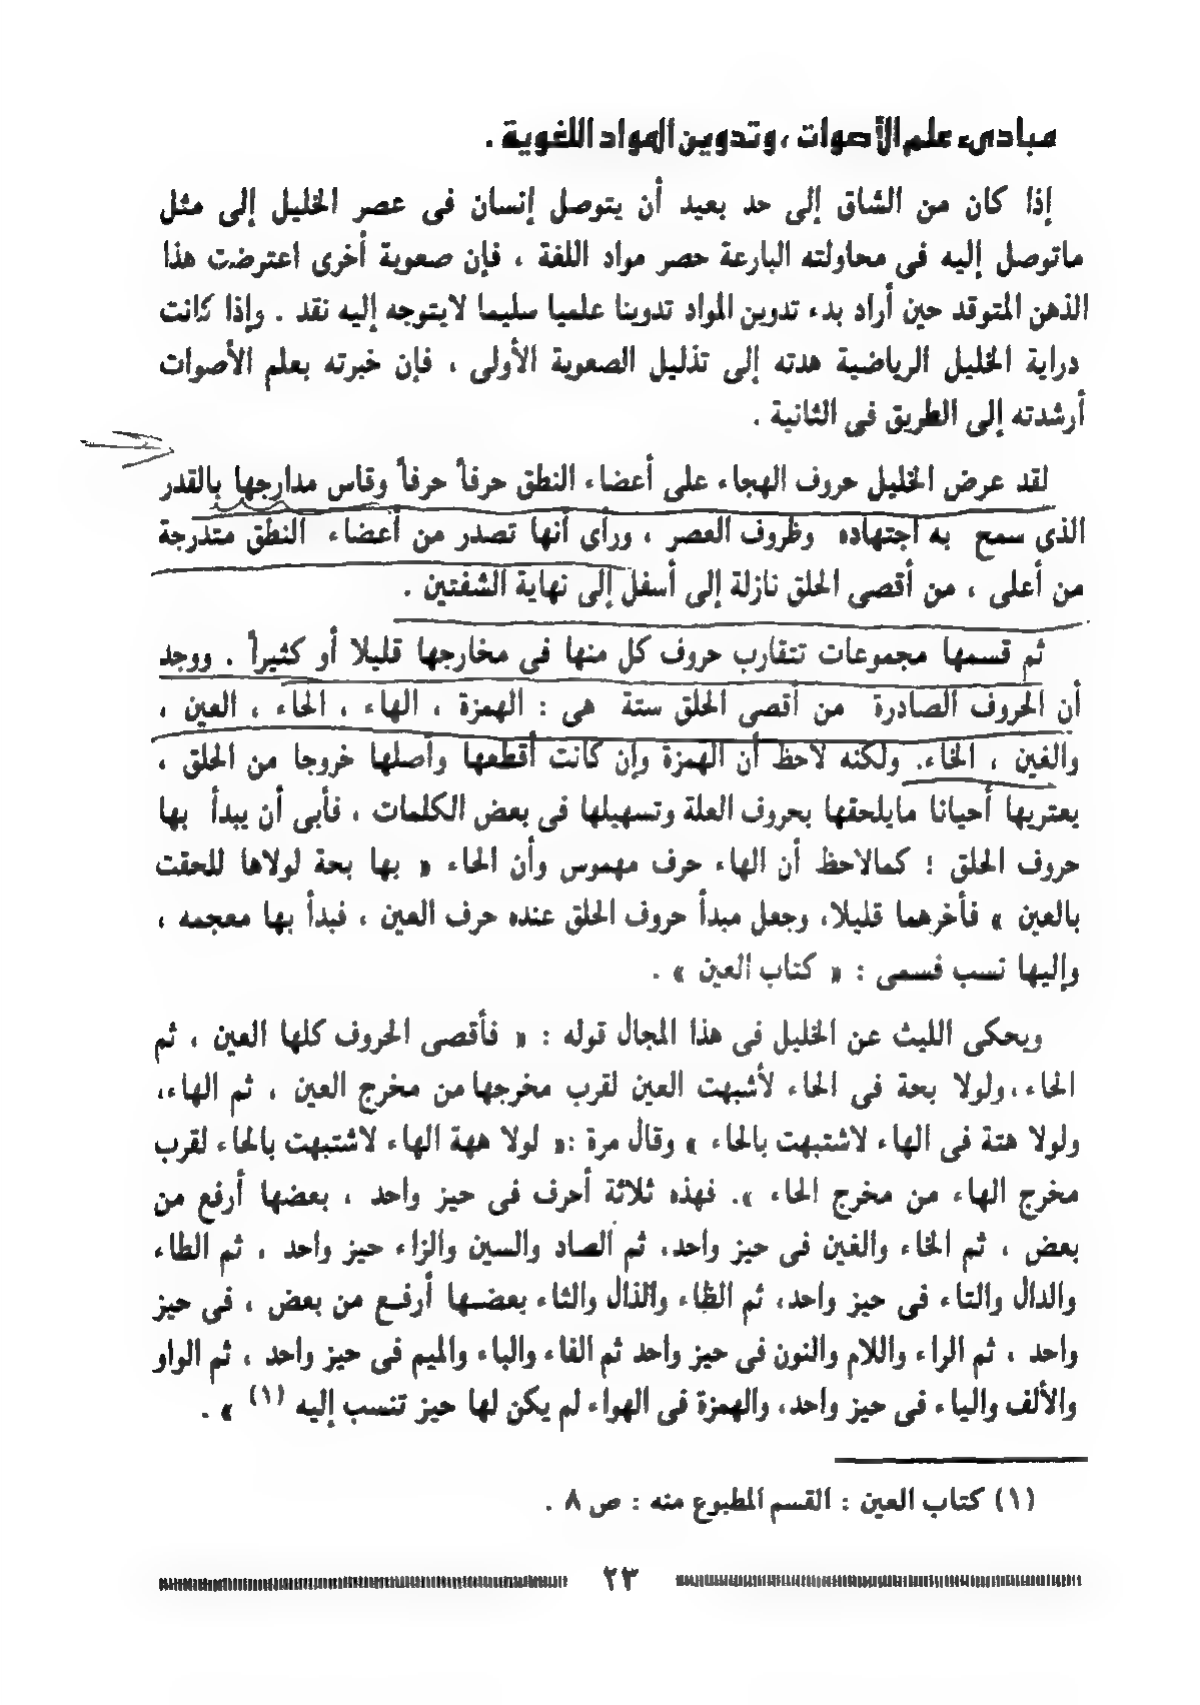 مبادىء علم الأصوات ، وتدوين المواد اللغوية .
إذا كان من الشاق إلى حد بعيد أن يتوصل إنسان فى عصر الخليل إلى مثل
ماتوصل إليه فى محاولته البارعة حصر مواد اللغة ، فإن صعوبة أخرى اعترضت هذا
الذهن المتوقد حين أراد بدء تدوين المواد تدوينا علميا سليما لايتوجه إليه نقد . وإذا كانت
دراية الخليل الرياضية هدته إلى تذليل الصعوبة الأولى ، فإن خبرته بعلم الأصوات
أرشدته إلى الطريق فى الثانية .
لقد عرض الخليل حروف الهجاء على أعضاء النطق حرفاً حرفاً وقاس مدارجها بالقدر
الذى سمح به اجتهاده وظروف العصر ، ورأى أنها تصدر من أعضاء النطق متدرجة
من أعلى ، من أقصى الحلق نازلة إلى أسفل إلى نهاية الشفتين .
ثم قسمها مجموعات تتقارب حروف كل منها فى مخارجها قليلا أو كثيراً . ووجد
أن الحروف الصادرة من أقصى الحلق ستة هى : الهمزة ، الهاء ، الحاء ، العين ،
والغين ، الخاء. ولكنه لاحظ أن الهمزة وإن كانت أقطعها وأصلها خروجا من الحلق ،
يعتريها أحيانا مايلحقها بحروف العلة وتسهيلها فى بعض الكلمات ، فأبى أن يبدأ بها
حروف الحلق ؛ كمالاحظ أن الهاء حرف مهموس وأن الحاء « بها بحة لولاها للحقت
بالعين » فأخرهما قليلا، وجعل مبدأ حروف الحلق عنده حرف العين ، فبدأ بها معجمه ،
وإليها نسب فسمى : « كتاب العين » .
ويحكى الليث عن الخليل فى هذا المجال قوله : « فأقصى الحروف كلها العين ، ثم
الحاء ،ولولا بحة فى الحاء لأشبهت العين لقرب مخرجها من مخرج العين ، ثم الهاء،
ولولا هتة فى الهاء لاشتبهت بالحاء » وقال مرة :« لولا ههة الهاء لاشتبهت بالحاء لقرب
مخرج الهاء من مخرج الحاء ». فهذه ثلاثة أحرف فى حيز واحد ، بعضها أرفع من
بعض ، ثم الخاء والغين فى حيز واحد، ثم الصاد والسين والزاء حيز واحد ، ثم الطاء
والدال والتاء فى حيز واحد، ثم الظاء والذال والثاء بعضها أرفع من بعض ، فى حيز
واحد ، ثم الراء واللام والنون فى حيز واحد ثم الفاء والباء والميم فى حيز واحد ، ثم الواو
والألف والياء فى حيز واحد، والهمزة فى الهواء لم يكن لها حيز تنسب إليه (١) » .
(١) كتاب العين : القسم المطبوع منه : ص ٨ .
٢٣